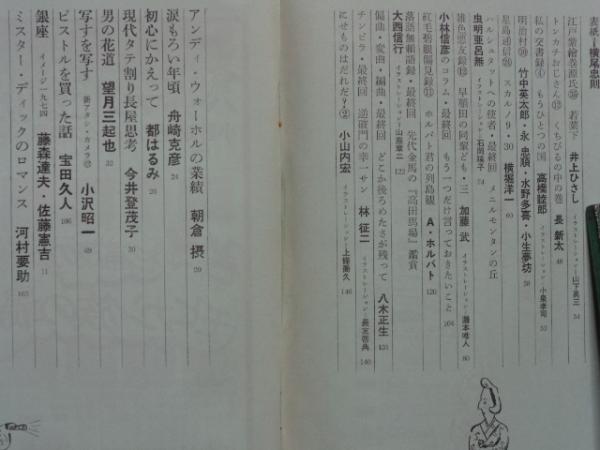 表紙=横尾忠則
江戸紫絵巻源氏㉚ 若菜下 井上ひさし イラストレーション・山下勇三 34
トンカチおじさん⑫ くちびるの中の巻 長 新太 48
私の交書録④ もうひとつの国 高橋睦郎 イラストレーション・小島孝司 53
明治村 竹中英太郎・永 忠順・水野多喜・小生夢坊 56
星島通信 スカルノ9・30 横堀洋一 60
ハルシュタットへの使者・最終回 メニルモンタンの丘
虫明亜呂無 イラストレーション・石岡瑛子 74
雑色頭友録⑬ 早稲田の同輩ども・三 加藤 武 イラストレーション・灘本唯人 80
小林信彦のコラム・最終回 もう一つだけ言っておきたいこと 104
紅毛碧眼偏見録⑪ ホルバト君の列島観 A・ホルバト 120
落語無頼語録・最終回 先代金馬の『高田馬場』鑑賞
大西信行 イラストレーション・山藤章二 122
偏曲・変曲・編曲・最終回 どこか後ろめたさが残って 八木正生 135
チンピラ・最終回 逆破門の幸一サン 林 征二 イラストレーション・長友啓典 140
にせものはだれだ?② 小山内宏 イラストレーション・上條喬久 146
アンディ・ウォーホルの業績 朝倉 摂 20
涙もろい年頃 舟崎克彦 24
初心にかえって 都はるみ 26
現代タテ割り長屋思考 今井登茂子 30
男の花道 望月三起也 32
写すを写す 新アタシ・カメラ 小沢昭一 69
ピストルを買った話 宝田久人 106
銀座 イメージ一九七四 藤森達夫・佐藤憲吉 11
ミスター・ディックのロマンス 河村要助 165